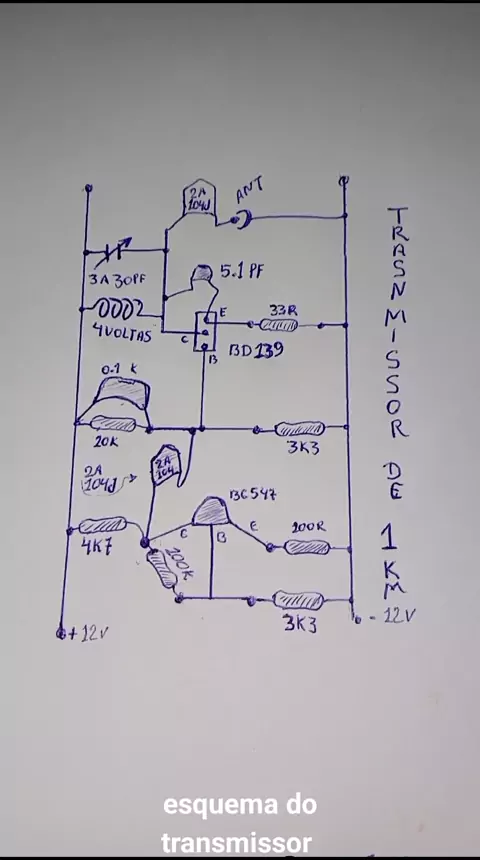 2A
104J
ANT
3A30PF
5.1 PF
E
33R
4VOLTAS
C
BD139
B
0.1 K
20K
3K3
2A
104J
2A
104
BC547
C
B
E
100R
4K7
100K
3K3
+12V
-12V
TRASNMISSOR DE 1KM
esquema do
transmissor